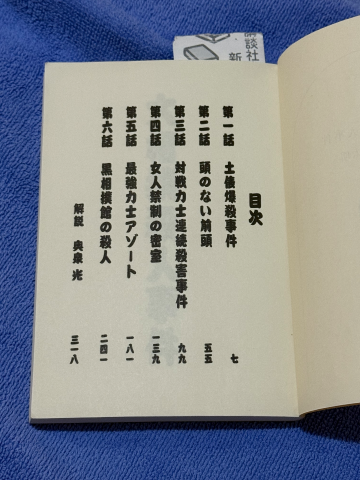 講談社
新
目次
第一話 土俵爆殺事件 七
第二話 頭のない前頭 五五
第三話 対戦力士連続殺害事件 九九
第四話 女人禁制の密室 一三九
第五話 最強力士アゾート 一八一
第六話 黒相撲館の殺人 二四一
解説 奥泉光 三一八